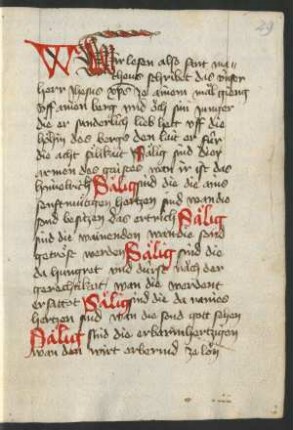 29
Wir lesen also sant ma
theus schribet das unser
herr jhesus xps ze ainem mal gieng
vff ainen berg und sich sin junger
die er sunderlich lieb hett vff die
höhin des bergs den lait er für
die acht sälikait Sälig sind die
armen des gaistes wan ir ist das
himelrich Sälig sind die die ains
senftmütigen hertzen sind wan die
sond besitzen das ertrich Sälig
sind die wainenden wan die sond
getröst werden Sälig sind die
da hungret und dürst nach der
gerechtikait wan die werdent
ersattet Sälig sind die da raines
hertzen sind wan die sond gott sehen
Sälig sind die erbarmhertzigen
wan den wirt erbermd ze lon